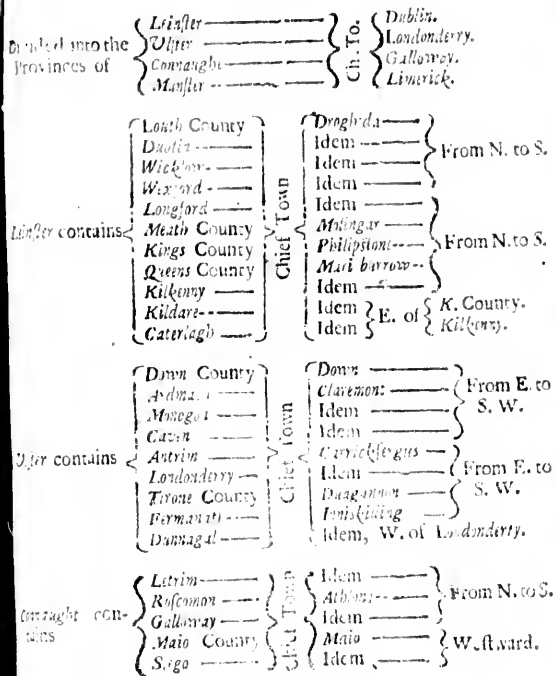 Divided into the Provinces of
Leinſter Ulſter Connaught Munſter
Ch. To.
Dublin. Londonderry. Galloway. Limerick.
Leinſter contains
Louth County
Dublin
Wicklow
Wexford
Longford
Meath County
Kings County
Queens County
Kilkenny
Kildare
Caterlagh
Chief Town
Drogheda
Idem
Idem
Idem
From N. to S.
Idem
Molingar
Philipſtont
Mari burrow
Idem
From N. to S.
Idem
Idem
E. of
K. County.
Kilkenny.
Ulſter contains
Down County
Ardmagh
Monegon
Caven
Antrim
Londonderry
Tirone County
Fermanagh
Dunnagal
Chief Town
Down
Claremont
Idem
Idem
From E. to S. W.
Carrickfergus
Idem
Dungannon
Inniskilling
From E. to S. W.
Idem, W. of Londonderry.
Connaught contains
Letrim
Roſcomon
Galloway
Maio County
Slego
Chief Town
Idem
Athlone
Idem
From N. to S.
Maio
Idem
Weſtward.